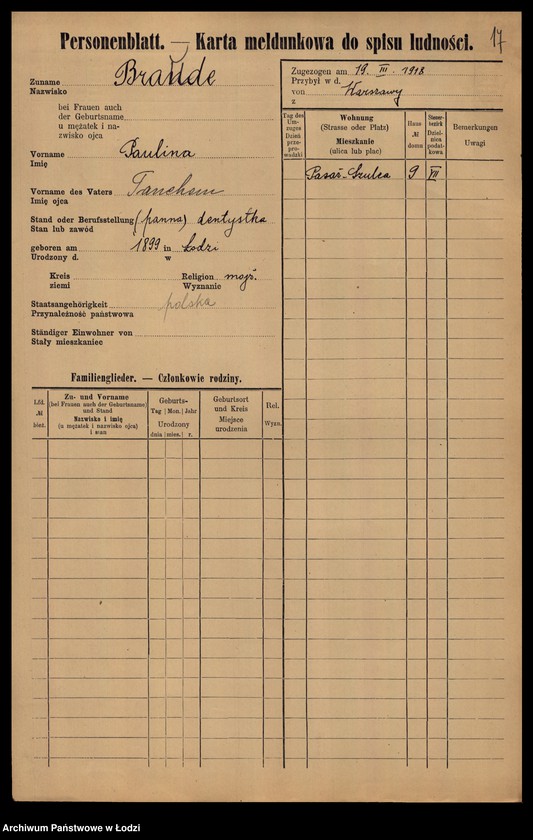 17
Personenblatt. — Karta meldunkowa do spisu ludności.
Zuname Braude
Nazwisko
bei Frauen auch
der Geburtsname
u mężatek i na-
zwisko ojca
Vorname Paulina
Imię
Vorname des Vaters Tanchem
Imię ojca
Stand oder Berufsstellung (panna) dentystka
Stan lub zawód
geboren am 1899 in Łodzi
Urodzony d. w
Kreis Religion mojż.
ziemi Wyznanie
Staatsangehörigkeit polska
Przynależność państwowa
Ständiger Einwohner von
Stały mieszkaniec
Zugezogen am 19. III. 1918
Przybył w d.
von Warszawy
z
Tag des Um-zuges Dzień prze-prowadzki
Wohnung
(Strasse oder Platz)
Mieszkanie
(ulica lub plac)
Haus № domu
Steuer-bezirk Dziel-nica podat-kowa
Bemerkungen
Uwagi
Pasaż-Szulca 9 VII
Familienglieder. — Członkowie rodziny.
Lfd. № bież.
Zu- und Vorname
(bei Frauen auch der Geburtsname)
und Stand
Nazwisko i imię
(u mężatek i nazwisko ojca)
i stan
Geburts-
Tag Mon. Jahr
Urodzony
dnia mies. r.
Geburtsort
und Kreis
Miejsce
urodzenia
Rel.
Wyzn.
Archiwum Państwowe w Łodzi